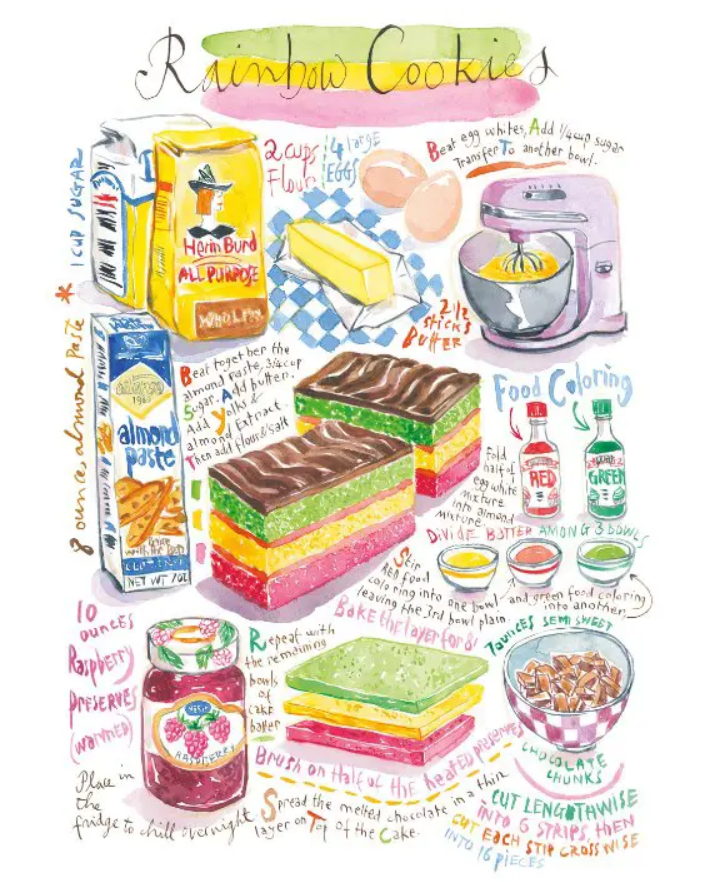 Rainbow Cookies
1 CUP SUGAR
2 cups
Flour
4 large
EGGS
Beat egg whites, Add 1/4 cup sugar
Transfer To another bowl.
Herin Burd
ALL PURPOSE
2 1/2
sticks
Butter
*
8 ounces almond Paste
1963
almond
paste
NET WT 7OZ
Beat together the
almond paste, 3/4 cup
Sugar. Add butter.
Add yolks &
almond Extract.
Then add flour & salt
Food Coloring
RED
GREEN
Fold
half of
egg white
mixture
into almond
mixture.
DIVIDE BOTTER AMONG 3 BOWLS
Stir
RED food
coloring into one bowl and green food coloring
leaving the 3rd bowl plain. into another.
Bake the layer for 8
10
ounces
Raspberry
preserves
(warmed)
RASPBERRY
Repeat with
the remaining
bowls
of
cake
batter
7 ounces SEMI SWEET
CHOCOLATE
CHUNKS
Brush on Half of the heated preserves
Place in
the
fridge to chill overnight
Spread the melted chocolate in a thin
layer on Top of the Cake.
CUT LENGTHWISE
INTO 6 STRIPS, THEN
CUT EACH STIP CROSSWISE
INTO 16 PIECES